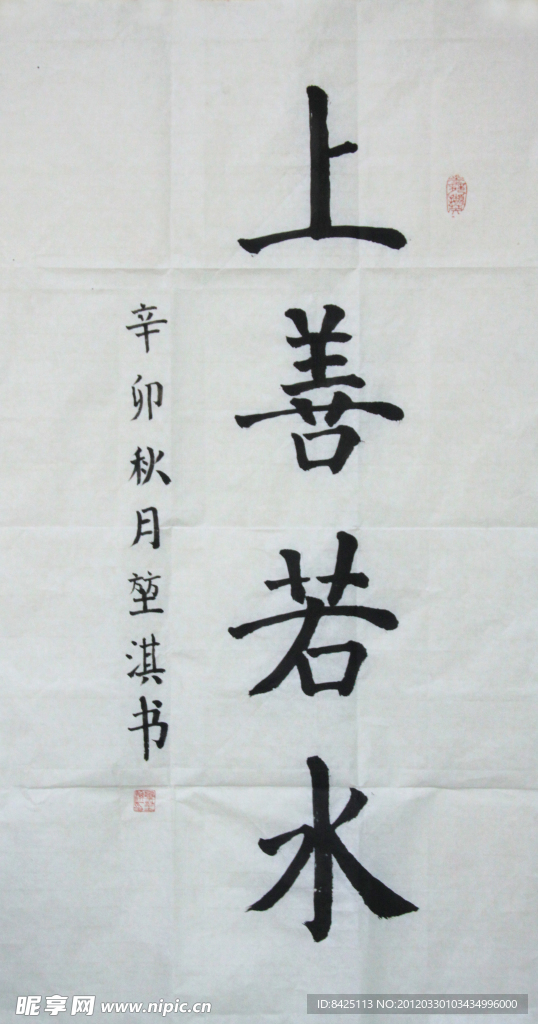 上善若水
辛卯秋月堃淇书
昵享网 www.nipic.cn
ID:8425113 NO:20120330103434996000